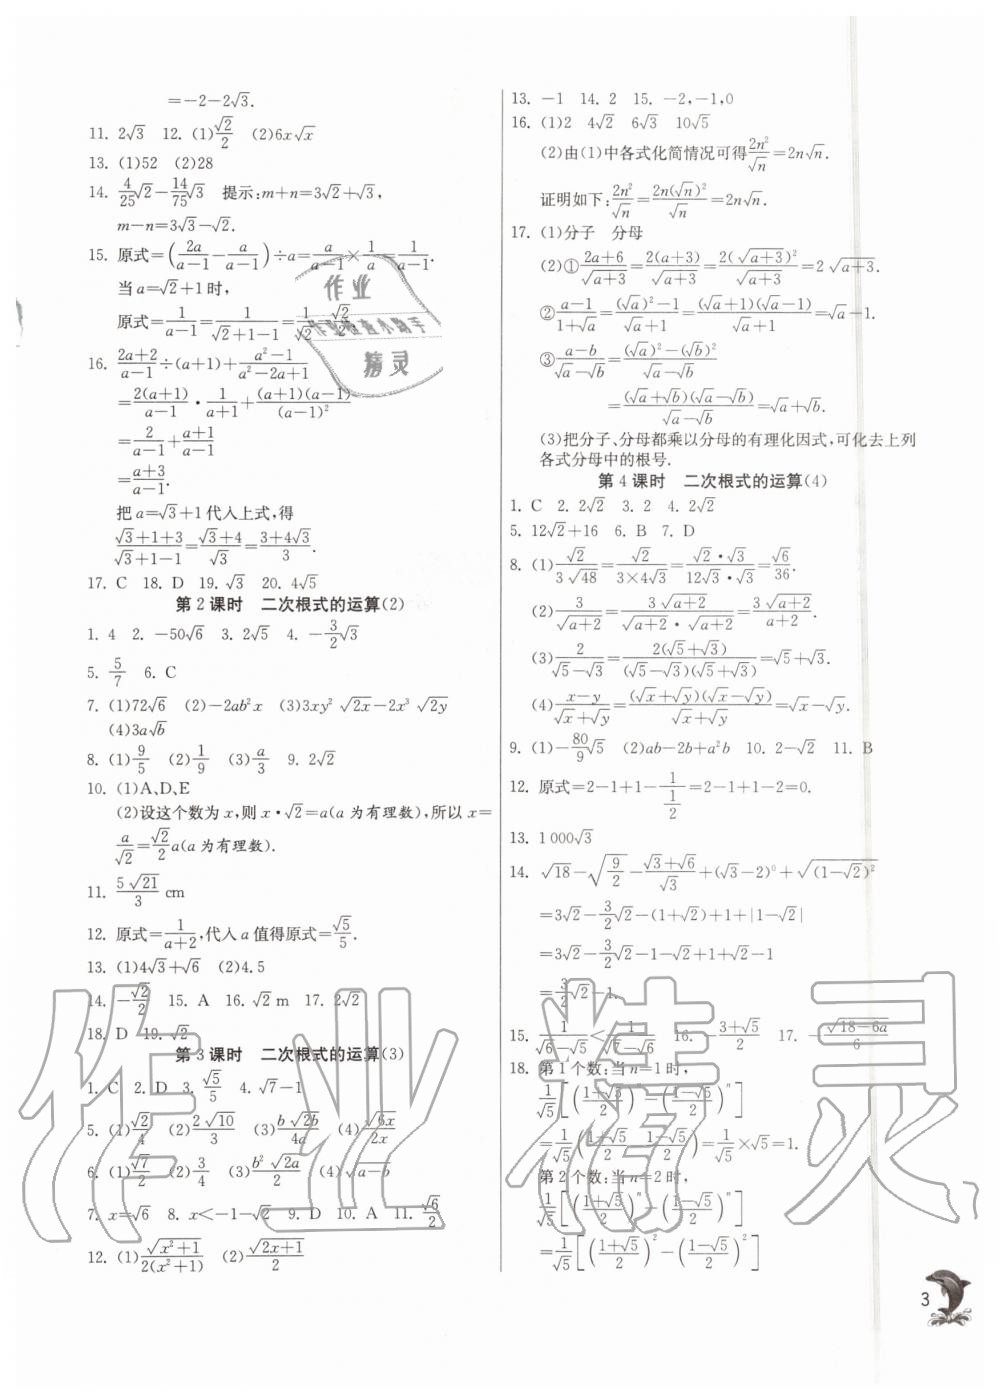 =-2-2√3.
11. 2√3 12. (1)√2/2 (2)6x√x
13. (1)52 (2)28
14. 4/25√2-14/75√3 提示:m+n=3√2+√3,
m-n=3√3-√2.
15. 原式=(2a/(a-1)-a/(a-1))÷a=a/(a-1)×1/a=1/(a-1).
当a=√2+1时,
原式=1/(a-1)=1/(√2+1-1)=1/√2=√2/2.
16. (2a+2)/(a-1)÷(a+1)+(a²-1)/(a²-2a+1)
=2(a+1)/(a-1)·1/(a+1)+(a+1)(a-1)/(a-1)²
=2/(a-1)+(a+1)/(a-1)
=(a+3)/(a-1).
把a=√3+1代入上式,得
(√3+1+3)/(√3+1-1)=(√3+4)/√3=(3+4√3)/3.
17. C 18. D 19. √3 20. 4√5
第2课时 二次根式的运算(2)
1. 4 2. -50√6 3. 2√5 4. -3/2√3
5. 5/7 6. C
7. (1)72√6 (2)-2ab²x (3)3xy²√2x-2x³√2y
(4)3a√b
8. (1)9/5 (2)1/9 (3)a/3 9. 2√2
10. (1)A、D、E
(2)设这个数为x,则x·√2=a(a为有理数),所以x=
a/√2=√2/2a(a为有理数).
11. 5√21/3 cm
12. 原式=1/(a+2),代入a值得原式=√5/5.
13. (1)4√3+√6 (2)4.5
14. -√2/2 15. A 16. √2 m 17. 2√2
18. D 19. √2
第3课时 二次根式的运算(3)
1. C 2. D 3. √5/5 4. √7-1
5. (1)√2/4 (2)2√10/3 (3)b√2b/4a (4)√6x/2x
6. (1)√7/2 (2)3/4 (3)b²√2a/2 (4)√(a-b)
7. x=√6 8. x<-1-√2 9. D 10. A 11. √6/2
12. (1)√(x²+1)/2(x²+1) (2)√(2x+1)/2
13. -1 14. 2 15. -2,-1,0
16. (1)2 4√2 6√3 10√5
(2)由(1)中各式化简情况可得2n²/√n=2n√n.
证明如下:2n²/√n=2n(√n)²/√n=2n√n.
17. (1)分子 分母
(2)①(2a+6)/√(a+3)=2(a+3)/√(a+3)=2(√(a+3))²/√(a+3)=2√(a+3).
②(a-1)/(1+√a)=((√a)²-1)/(√a+1)=(√a+1)(√a-1)/(√a+1)=√a-1.
③(a-b)/(√a-√b)=((√a)²-(√b)²)/(√a-√b)
=(√a+√b)(√a-√b)/(√a-√b)=√a+√b.
(3)把分子、分母都乘以分母的有理化因式,可化去上列
各式分母中的根号.
第4课时 二次根式的运算(4)
1. C 2. 2√2 3. 2 4. 2√2
5. 12√2+16 6. B 7. D
8. (1)√2/(3√48)=√2/(3×4√3)=√2·√3/(12√3·√3)=√6/36.
(2)3/√(a+2)=3√(a+2)/(√(a+2)·√(a+2))=3√(a+2)/(a+2).
(3)2/(√5-√3)=2(√5+√3)/((√5-√3)(√5+√3))=√5+√3.
(4)(x-y)/(√x+√y)=(√x+√y)(√x-√y)/(√x+√y)=√x-√y.
9. (1)-80/9√5 (2)ab-2b+a²b 10. 2-√2 11. B
12. 原式=2-1+1-1/(1/2)=2-1+1-2=0.
13. 1 000√3
14. √18-√(9/2)-(√3+√6)/√3+(√3-2)⁰+√((1-√2)²)
=3√2-3/2√2-(1+√2)+1+|1-√2|
=3√2-3/2√2-1-√2+1+√2-1
=3/2√2-1.
15. 1/(√6-√5)<1/(√7-√6) 16. -(3+√5)/2 17. -√(18-6a)/6
18. 第1个数:当n=1时,
1/√5[((1+√5)/2)ⁿ-((1-√5)/2)ⁿ]
=1/√5((1+√5)/2-(1-√5)/2)=1/√5×√5=1.
第2个数:当n=2时,
1/√5[((1+√5)/2)ⁿ-((1-√5)/2)ⁿ]
=1/√5[((1+√5)/2)²-((1-√5)/2)²]
3
作业
精灵
作业精灵